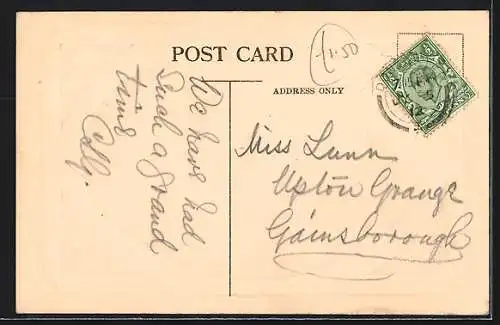 POST CARD
£1.50
ADDRESS ONLY
We have had
Such a grand
time
Miss Lunn
Upton Grange
Gainsborough